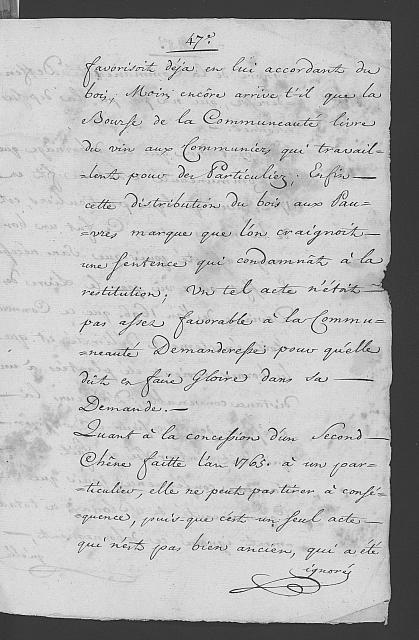 47.°
favorisoit déja en lui accordant du
bois, Moins encôre arrive t'-il que la
Bourse de la Communeauté livre
du vin aux Communiers qui travail-
=lent pour des Particuliers; Enfin —
cette distribution du bois aux Pau-
=vres marque que l'on craignoit —
une Sentence qui condamnât à la
restitution; Un tel acte n'étoit —
pas assez favorable à la Commu-
=neauté Demanderesse pour qu'elle
dût en faire Gloire dans sa —
Demande. —
Quant à la concession d'un Second —
Chêne faitte l'an 1765. à un par=
=ticulier, elle ne peut pas tirer à consé=
=quence, puis-que c'est un seul acte —
qui n'est pas bien ancien, qui a été
ignoré